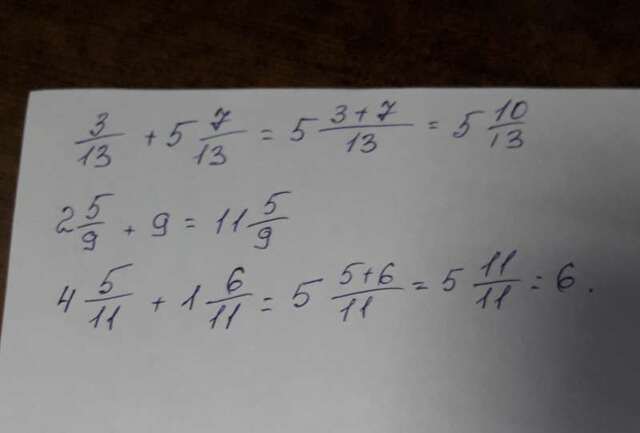 3/13 + 5 7/13 = 5 3+7/13 = 5 10/13
2 5/9 + 9 = 11 5/9
4 5/11 + 1 6/11 = 5 5+6/11 = 5 11/11 = 6.